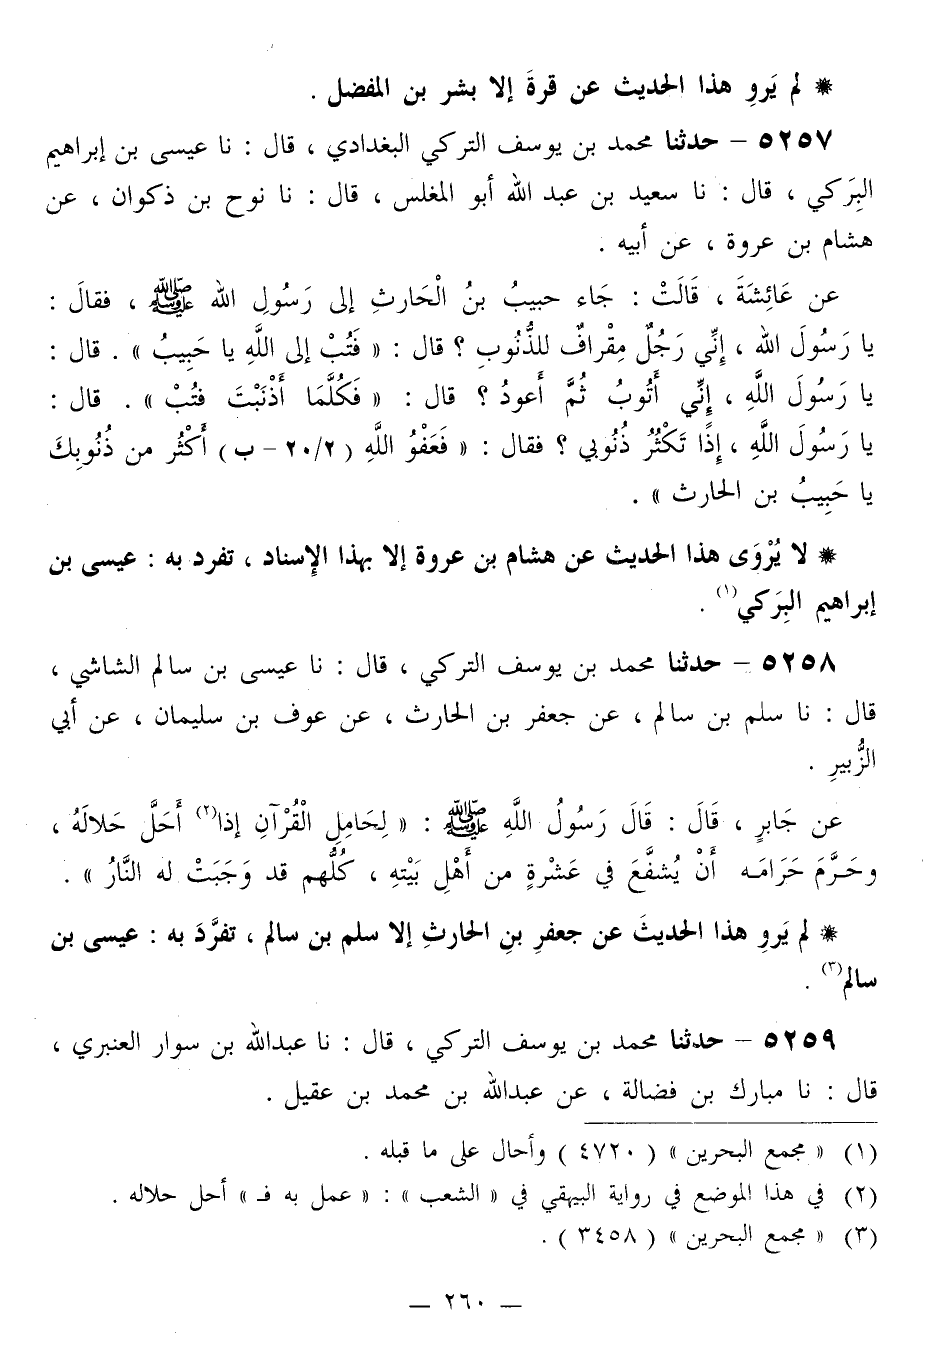 * لم يَروِ هذا الحديث عن قرةَ إلا بشر بن المفضل .
٥٢٥٧ – حدثنا محمد بن يوسف التركي البغدادي ، قال : نا عيسى بن إبراهيم
البِرَكي ، قال : نا سعيد بن عبد الله أبو المغلس ، قال : نا نوح بن ذكوان ، عن
هشام بن عروة ، عن أبيه .
عن عَائِشَةَ ، قَالَتْ : جَاء حبيبُ بنُ الْحَارثِ إلى رَسُولِ الله ﷺ ، فقالَ :
يا رَسُولَ الله ، إنِّي رَجُلٌ مِقْرافٌ للذُّنُوبِ ؟ قال : « فَتُبْ إلى اللَّهِ يا حَبِيبُ » . قال :
يا رَسُولَ اللَّهِ ، إنِّي أَتُوبُ ثُمَّ أَعودُ ؟ قال : « فَكُلَّمَا أَذْنَبْتَ فتُبْ » . قال :
يا رَسُولَ اللَّهِ ، إذًا تَكْثُرُ ذُنُوبي ؟ فقال : « فَعَفْوُ اللَّهِ ( ٢٠/٢ – ب ) أَكْثُر من ذُنُوبِكَ
يا حَبِيبُ بن الحارث » .
* لا يُرْوَى هذا الحديث عن هشام بن عروة إلا بهذا الإسناد ، تفرد به : عيسى بن
إبراهيم البِرَكي(١) .
٥٢٥٨ – حدثنا محمد بن يوسف التركي ، قال : نا عيسى بن سالم الشاشي ،
قال : نا سلم بن سالم ، عن جعفر بن الحارث ، عن عوف بن سليمان ، عن أبي
الزُّبيرِ .
عن جَابرٍ ، قَالَ : قَالَ رَسُولُ اللَّهِ ﷺ : « لِحَامِلِ الْقُرْآنِ إذا(٢) أَحَلَّ حَلالَهُ ،
وحَرَّمَ حَرَامَـه أَنْ يُشفَّعَ في عَشْرةٍ من أَهْلِ بَيْتهِ ، كُلُّهم قد وَجَبَتْ له النَّارُ » .
* لم يَروِ هذا الحديثَ عن جعفرِ بنِ الحارثِ إلا سلم بن سالم ، تفرَّدَ به : عيسى بن
سالم(٣) .
٥٢٥٩ – حدثنا محمد بن يوسف التركي ، قال : نا عبدالله بن سوار العنبري ،
قال : نا مبارك بن فضالة ، عن عبدالله بن محمد بن عقيل .
(١) « مجمع البحرين » ( ٤٧٢٠ ) وأحال على ما قبله .
(٢) في هذا الموضع في رواية البيهقي في « الشعب » : « عمل به فـ » أحل حلاله .
(٣) « مجمع البحرين » ( ٣٤٥٨ ) .
– ٢٦٠ –